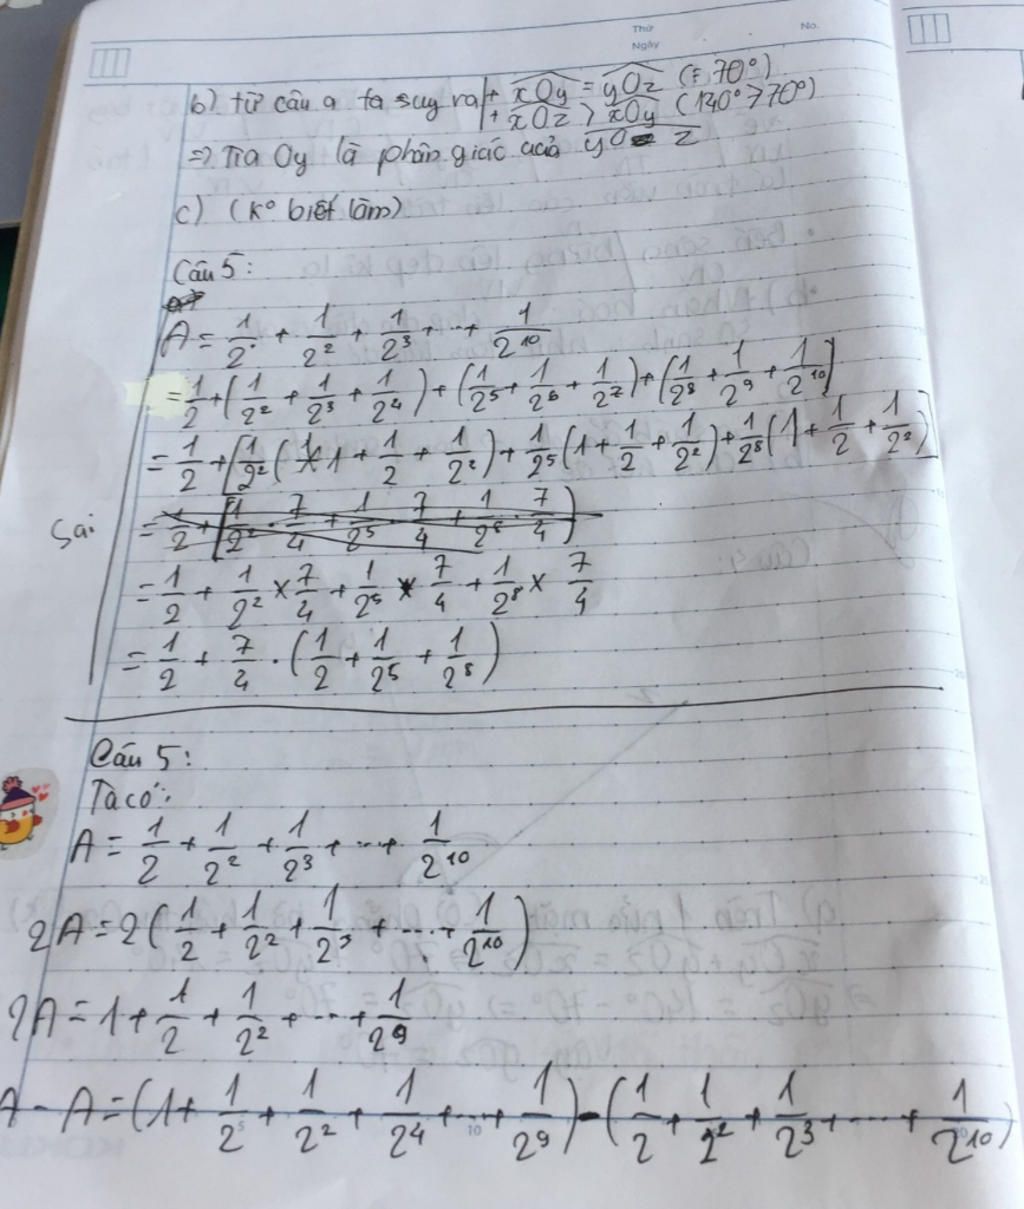 Thứ No.
Ngày
b) từ câu a ta suy ra + xOy = yOz (= 70°)
+ xOz > xOy (140° > 70°)
=> Tia Oy là phân giác của yO z
c) (k° biết làm)
Câu 5:
A = 1/2 + 1/2² + 1/2³ + ... + 1/2¹⁰
= 1/2 + (1/2² + 1/2³ + 1/2⁴) + (1/2⁵ + 1/2⁶ + 1/2⁷) + (1/2⁸ + 1/2⁹ + 1/2¹⁰]
= 1/2 + [1/2² (1 + 1/2 + 1/2²) + 1/2⁵ (1 + 1/2 + 1/2²) + 1/2⁸ (1 + 1/2 + 1/2²)]
Sai
= 1/2 + [1/2² . 7/4 + 1/2⁵ . 7/4 + 1/2⁸ . 7/4)
= 1/2 + 1/2² × 7/4 + 1/2⁵ × 7/4 + 1/2⁸ × 7/4
= 1/2 + 7/4 . (1/2 + 1/2⁵ + 1/2⁸)
Câu 5:
Ta có:
A = 1/2 + 1/2² + 1/2³ + ... + 1/2¹⁰
2A = 2(1/2 + 1/2² + 1/2³ + ... + 1/2¹⁰)
2A = 1 + 1/2 + 1/2² + ... + 1/2⁹
A - A = (1 + 1/2 + 1/2² + 1/2⁴ + ... + 1/2⁹) - (1/2 + 1/2² + 1/2³ + ... + 1/2¹⁰)